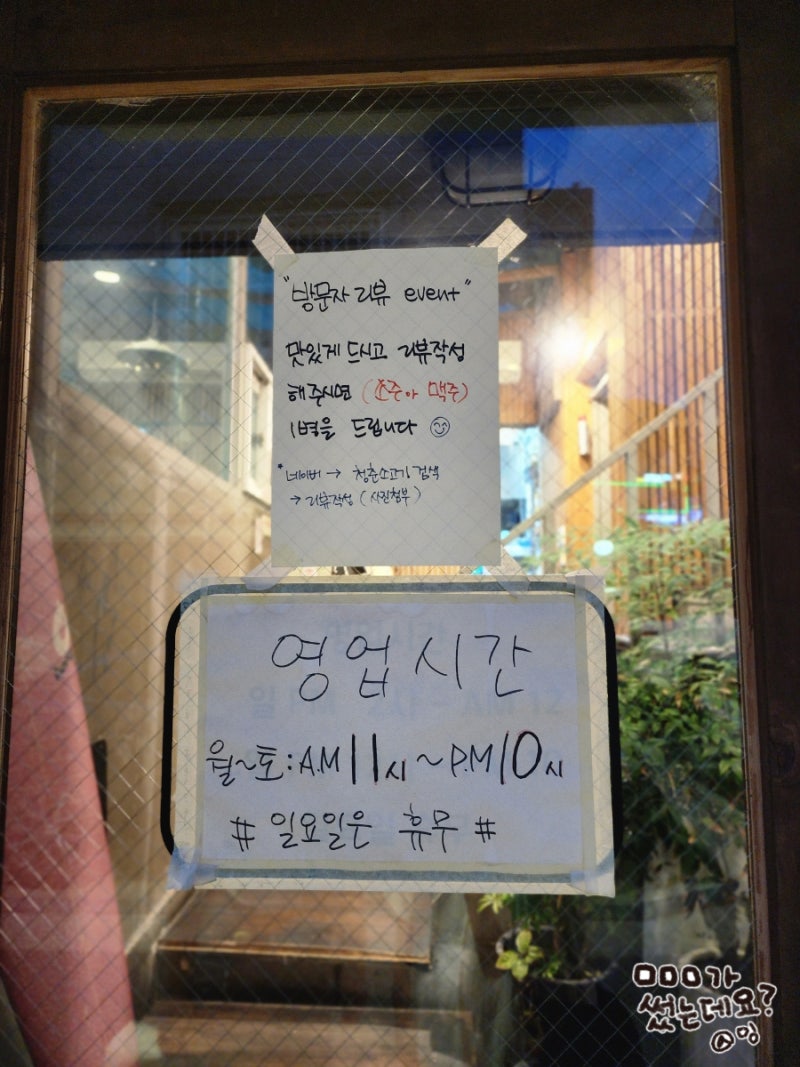 "방문자 리뷰 event"
맛있게 드시고 리뷰작성
해주시면 (소주or 맥주)
1병을 드립니다
* 네이버 → 청춘소고기 검색
→ 리뷰작성 (사진첨부)
영업시간
월~토: A.M 11시 ~ P.M 10시
# 일요일은 휴무 #
ㅁㅁㅁ가
썼는데요?